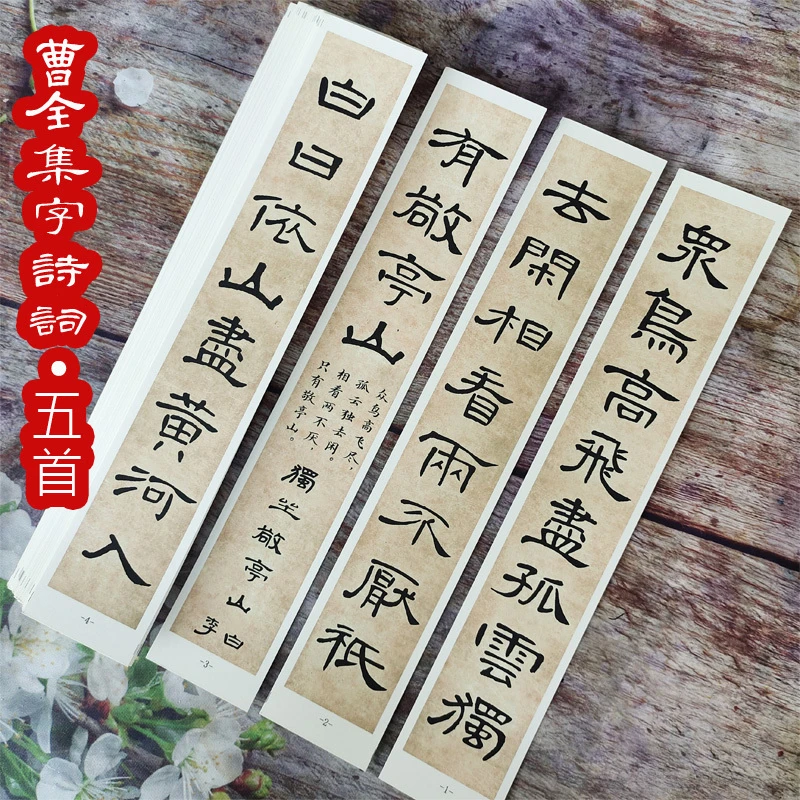 曹全集字詩詞•五首
衆鳥高飛盡孤雲獨
-1-
去閑相看兩不厭祇
-2-
有敬亭山
众鸟高飞尽，
孤云独去闲。
相看两不厌，
只有敬亭山。
獨坐敬亭山
李白
-3-
白日依山盡黃河入
-4-